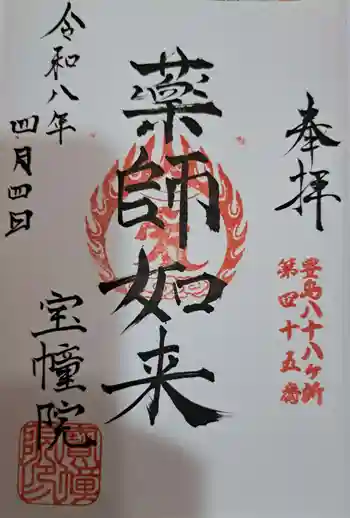 奉拝
豊島八十八ヶ所
第四十五番
薬師如来
令和八年
四月四日
宝幢院